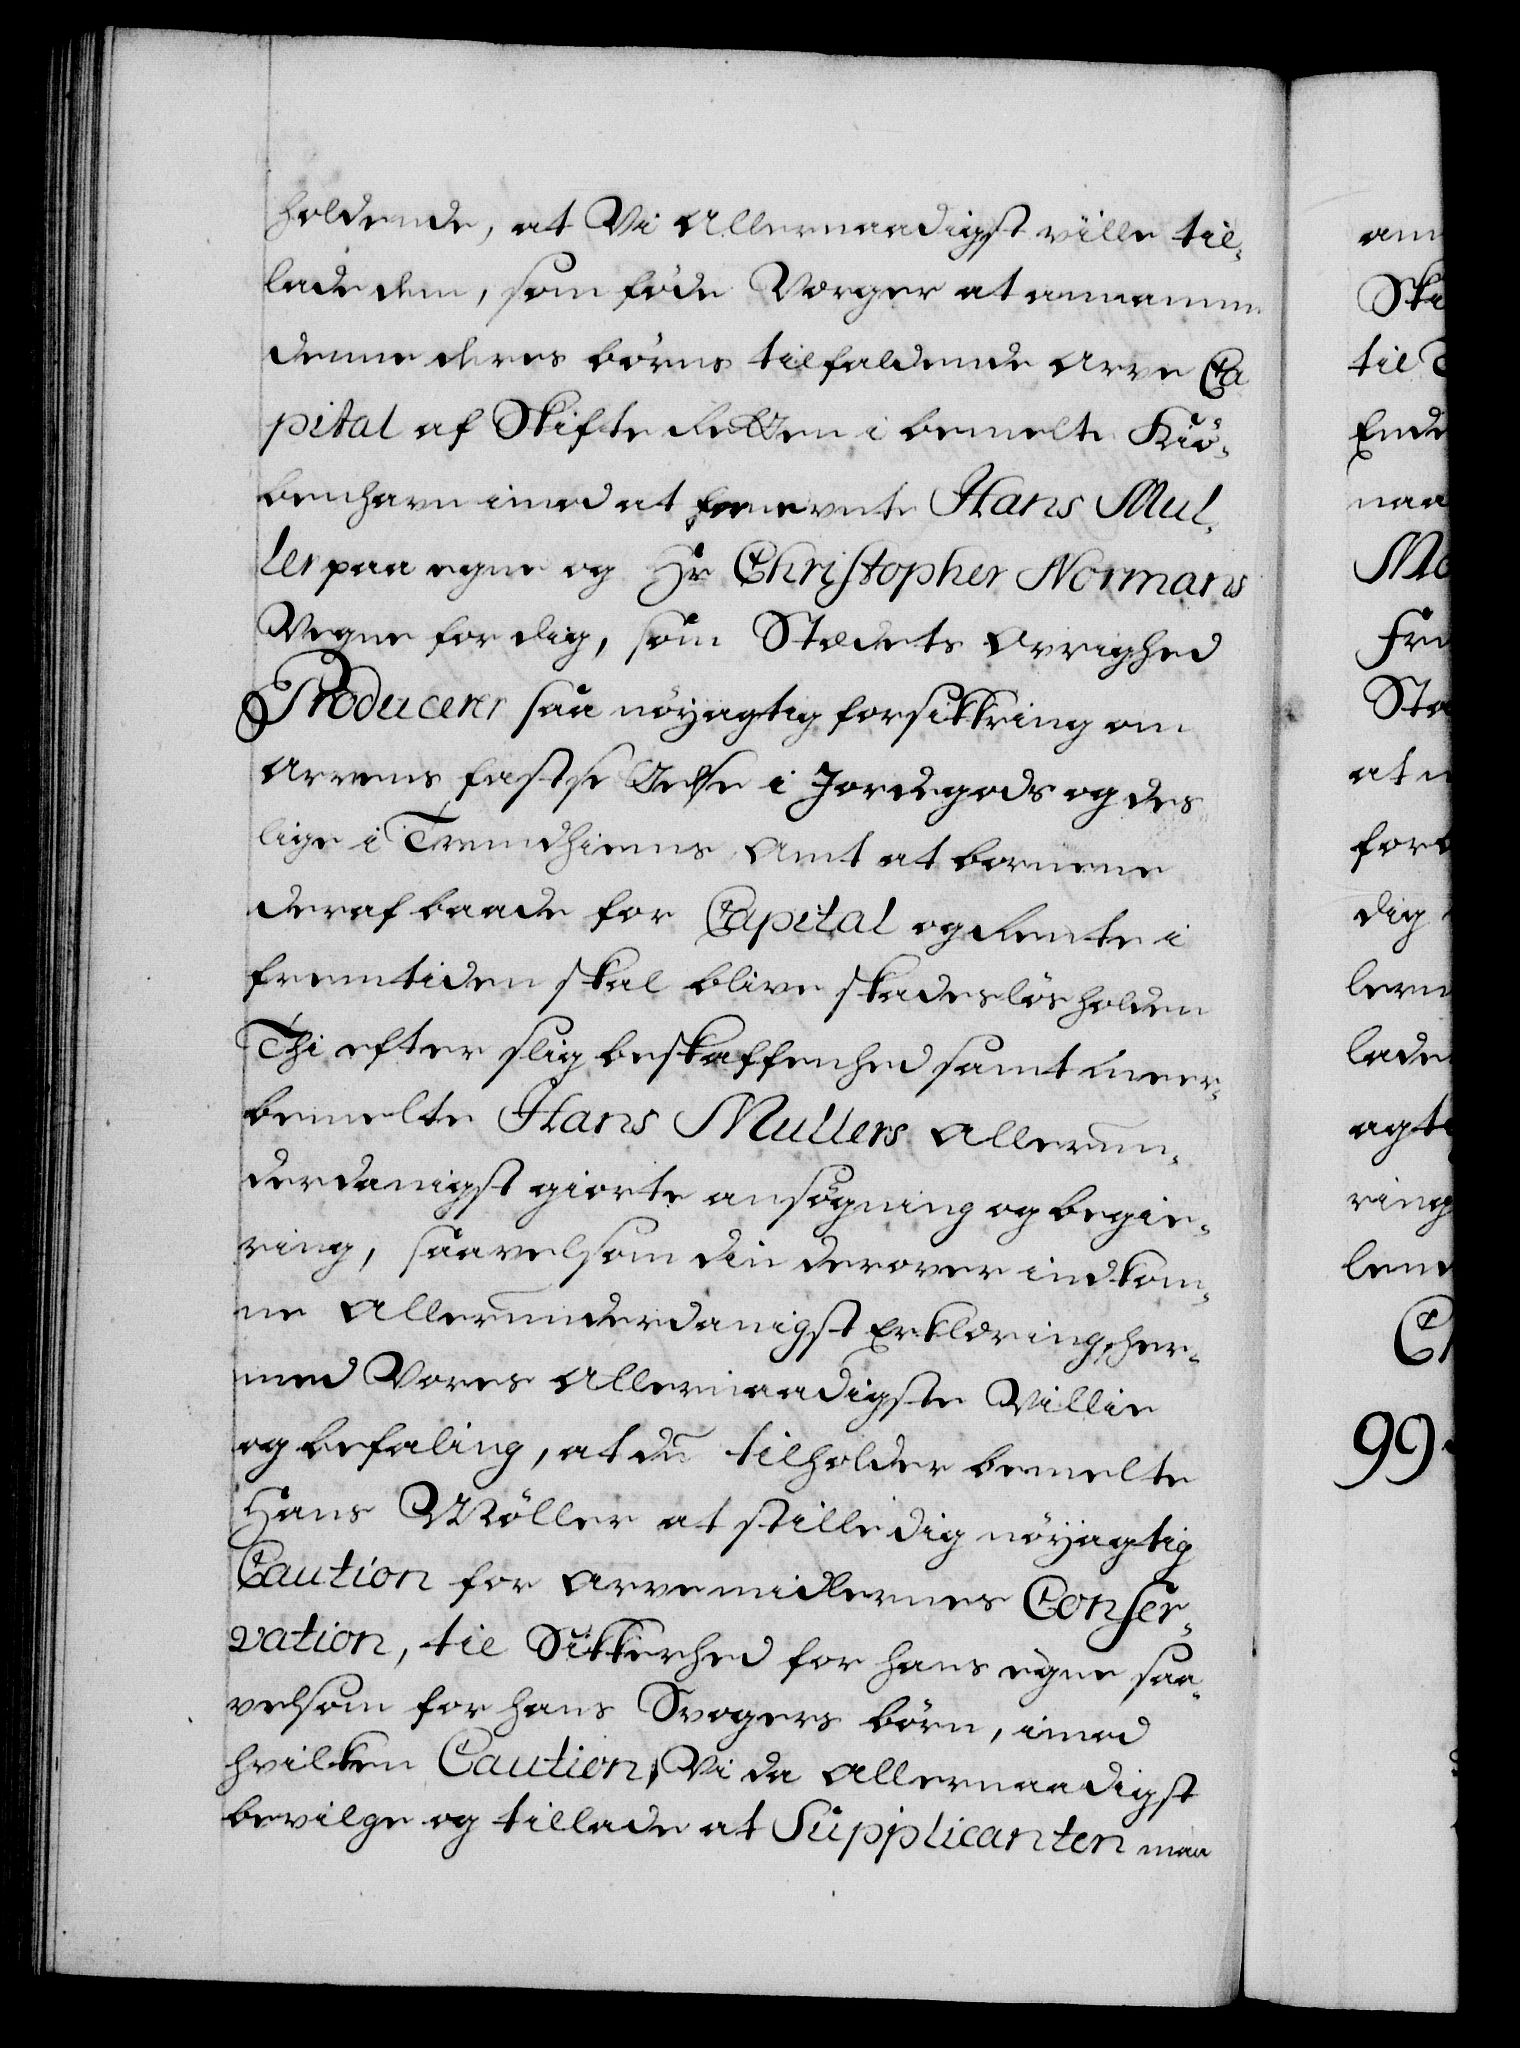 holdende, at Vi Allernaadigst ville til-
lade dem, som föde Værger at annamme
denne deres börns tilfaldende Arve Ca
pital af Skifte Retten i bemelte Kiö-
benhavn imod at Hans Mul-
ler paa egne og Hr Christopher Normans
Vegne for dig, som Stædets Øvrighed
Producerer saa nöyagtig forsikkring om
Arvens fastsettelse i Jordegods og des
lige i Trundhiems Amt at börnene
deraf baade for Capital og Rente i
fremtiden skal blive skadeslös holden
Thi efter slig beskaffenhed samt meer-
bemelte Hans Mullers Allerun-
derdanigst giorte ansögning og begie-
ring, saavelsom din derover indkom-
ne Allerunderdanigst Erklæring, her-
med Vores Allernaadigste Villie
og befaling, at du tilholder bemelte
Hans Möller at stille dig nöyagtig
Caution for Arvemidlernes Conser-
vation, til Sikkerhed for hans egne saa-
velsom for hans Svogers börn, imod
hvilken Caution, Vi da Allernaadigst
bevilge og tillade at Supplicanten maa
ann
Ska
til
Ende
naa
Mo
Fri
Sta
at
forb
dig
lern
lade
agt
ring
lem
Ch
99.